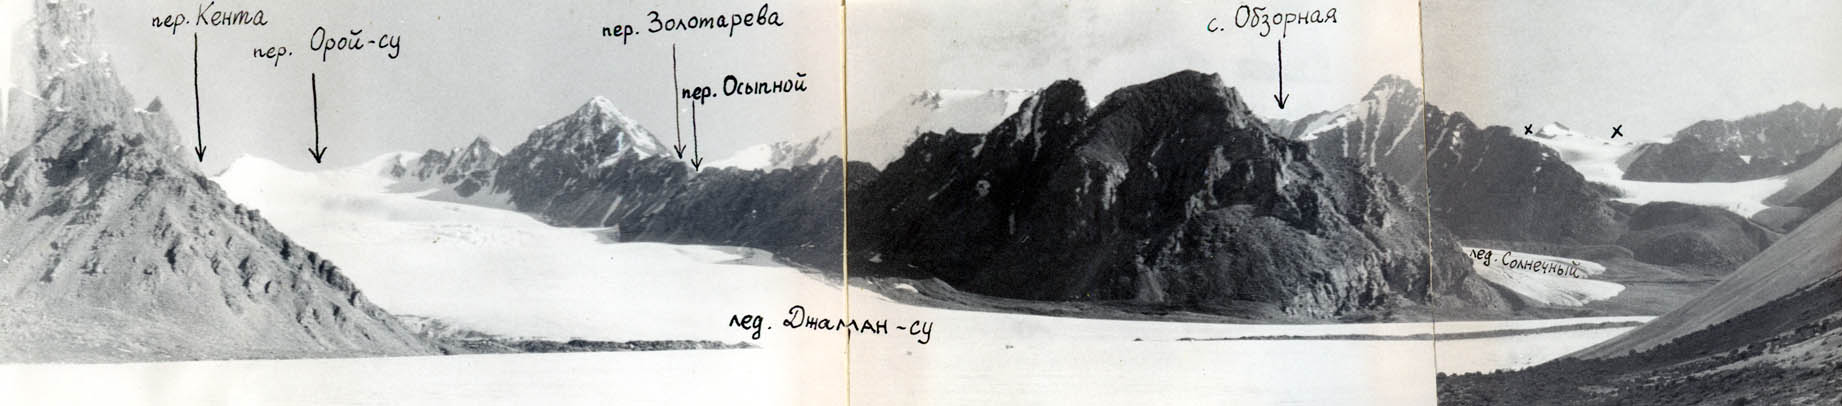 пер. Кента
пер. Орой-су
пер. Золотарева
пер. Осыпной
с. Обзорная
x
x
лед. Солнечный
лед. Джаман-су